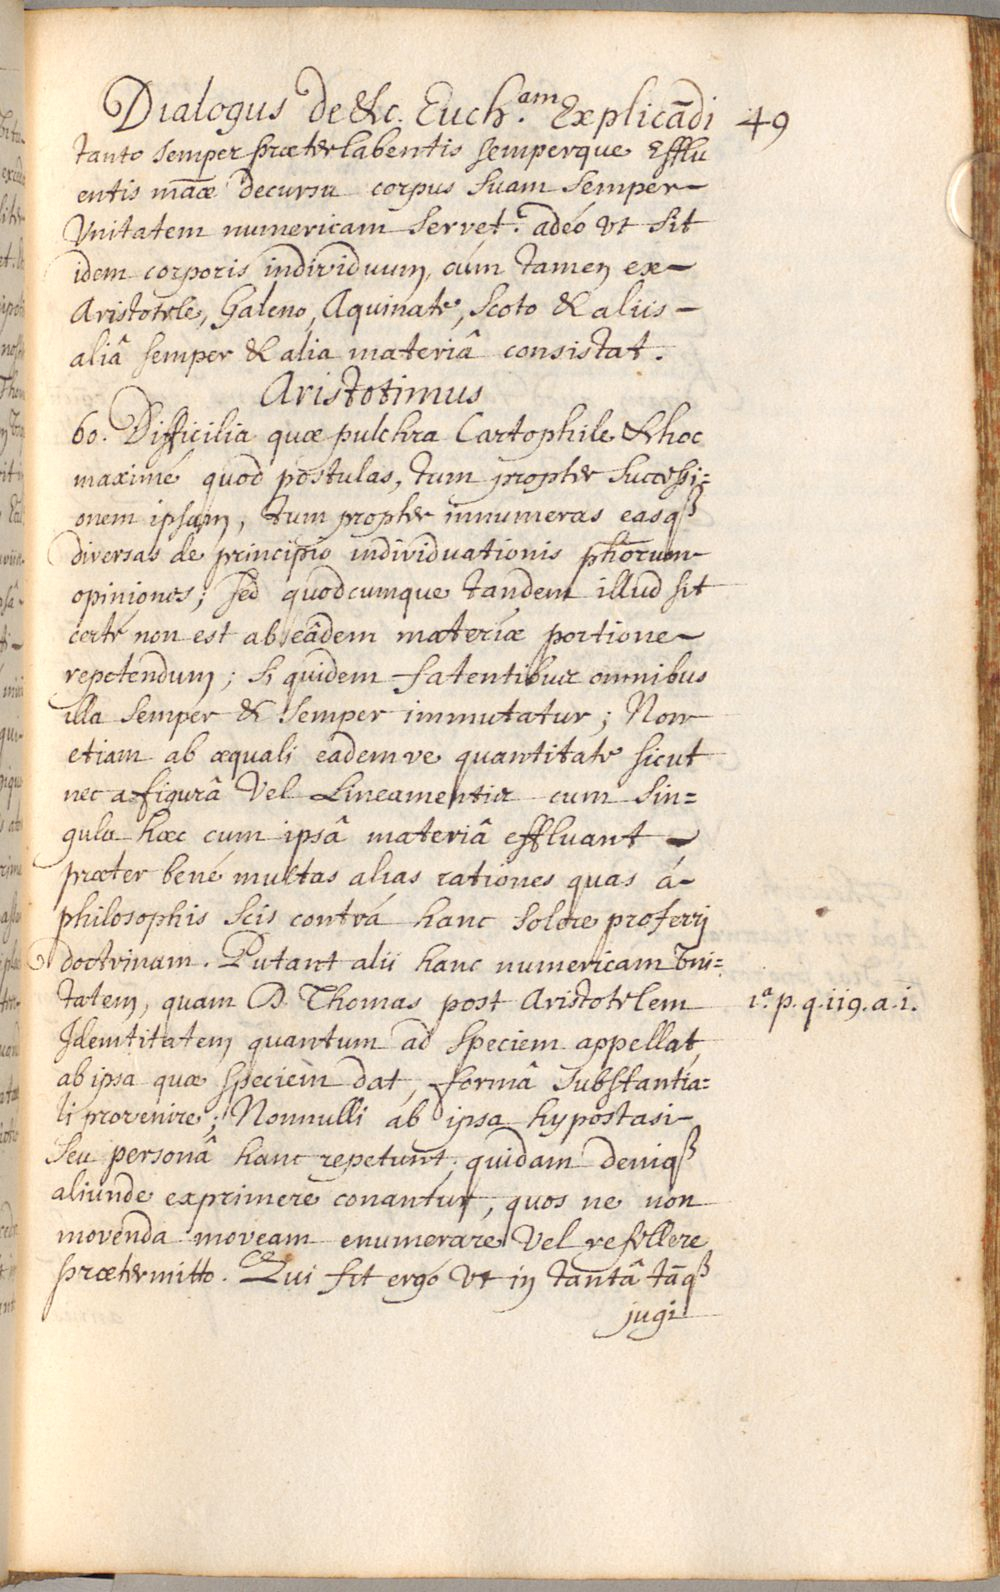 Dialogus De &c. Euch.am Explicādi 49
tanto semper præterlabentis semperque Efflu
entis māæ decursu corpus suam semper
Unitatem numericam servet? adéo ut sit
idem corporis individuum, cúm tamen ex
Aristotele, Galeno, Aquinate, Scoto & aliis
aliâ semper & alia materiâ consistat.
Aristotimus
60. Difficilia quæ pulchra Cartophile & hoc
maximé quod postulas, tum propter successi=
onem ipsam, tum propter innumeras easqȝ
diversas de principio individuationis phōrum
opiniones; sed quodcumque tandem illud sit
certé non est ab eâdem materiæ portione
repetendum; si quidem fatentibus omnibus
illa semper & semper immutatur; Non
etiam ab æquali eademve quantitate sicut
nec a figurâ vel Lineamentis cum sin=
gula hæc cum ipsâ materiâ effluant
præter bené multas alias rationes quas á
philosophis scis contrá hanc solere proferrj
doctrinam. Putant alii hanc numericam Uni=
tatem, quam D. Thomas post Aristotelem 1ª. p. q. 119. a. 1.
Identitatem quantum ad speciem appellat,
ab ipsa quæ speciem dat, formâ Substantia=
li provenire; Nonnulli ab ipsa hypostasi
Seu personâ hanc repetunt; quidam deniqȝ
aliunde exprimere conantur, quos ne non
movenda moveam enumerare vel refellere
prætermitto. Qui fit ergó Ut in tantâ tāqȝ
jugi